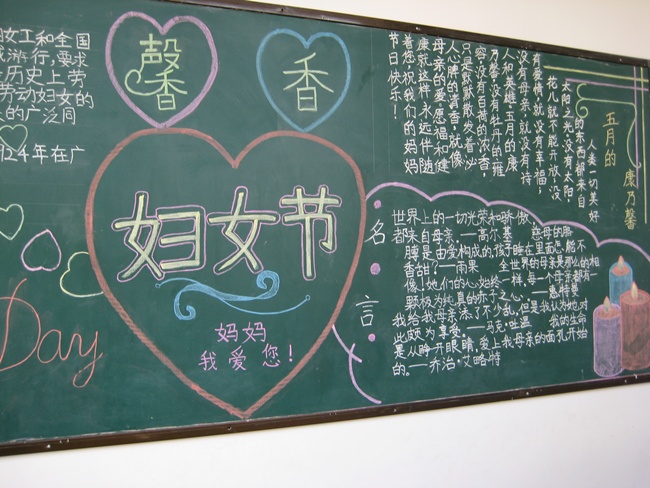 妇女工和全国
游行,要求
历史上劳
劳动妇女的
的广泛同
924年在广
Day
馨
香
妇女节
妈妈
我爱您!
五月的康乃馨
人类一切美好
的东西都来自
太阳之光,没有太阳,
花儿就不能开放,没
有爱情就没有幸福,
没有母亲,就没有诗
人和英雄,五月的康
乃馨,没有牡丹的雍
容,没有百荷的浓香,
只是默默散发着沁
人心脾的清香,就像
母亲的爱,愿福和健
康就这样永远伴随
着您,祝我们的妈妈
节日快乐!
名言
世界上的一切光荣和骄傲,
都来自母亲。——高尔基 慈母的胳
脾是由爱构成的,孩子睡在里面怎能不
香甜?——雨果 全世界的母亲是那么的相
像!她们的心始终一样,每一个母亲都有一
颗极为纯真的赤子之心。——惠特曼
我给我母亲添了不少乱,但是我认为她对
此颇为享受。——马克·吐温 我的生命
是从睁开眼睛,爱上我母亲的面孔开始
的。——乔治·艾略特